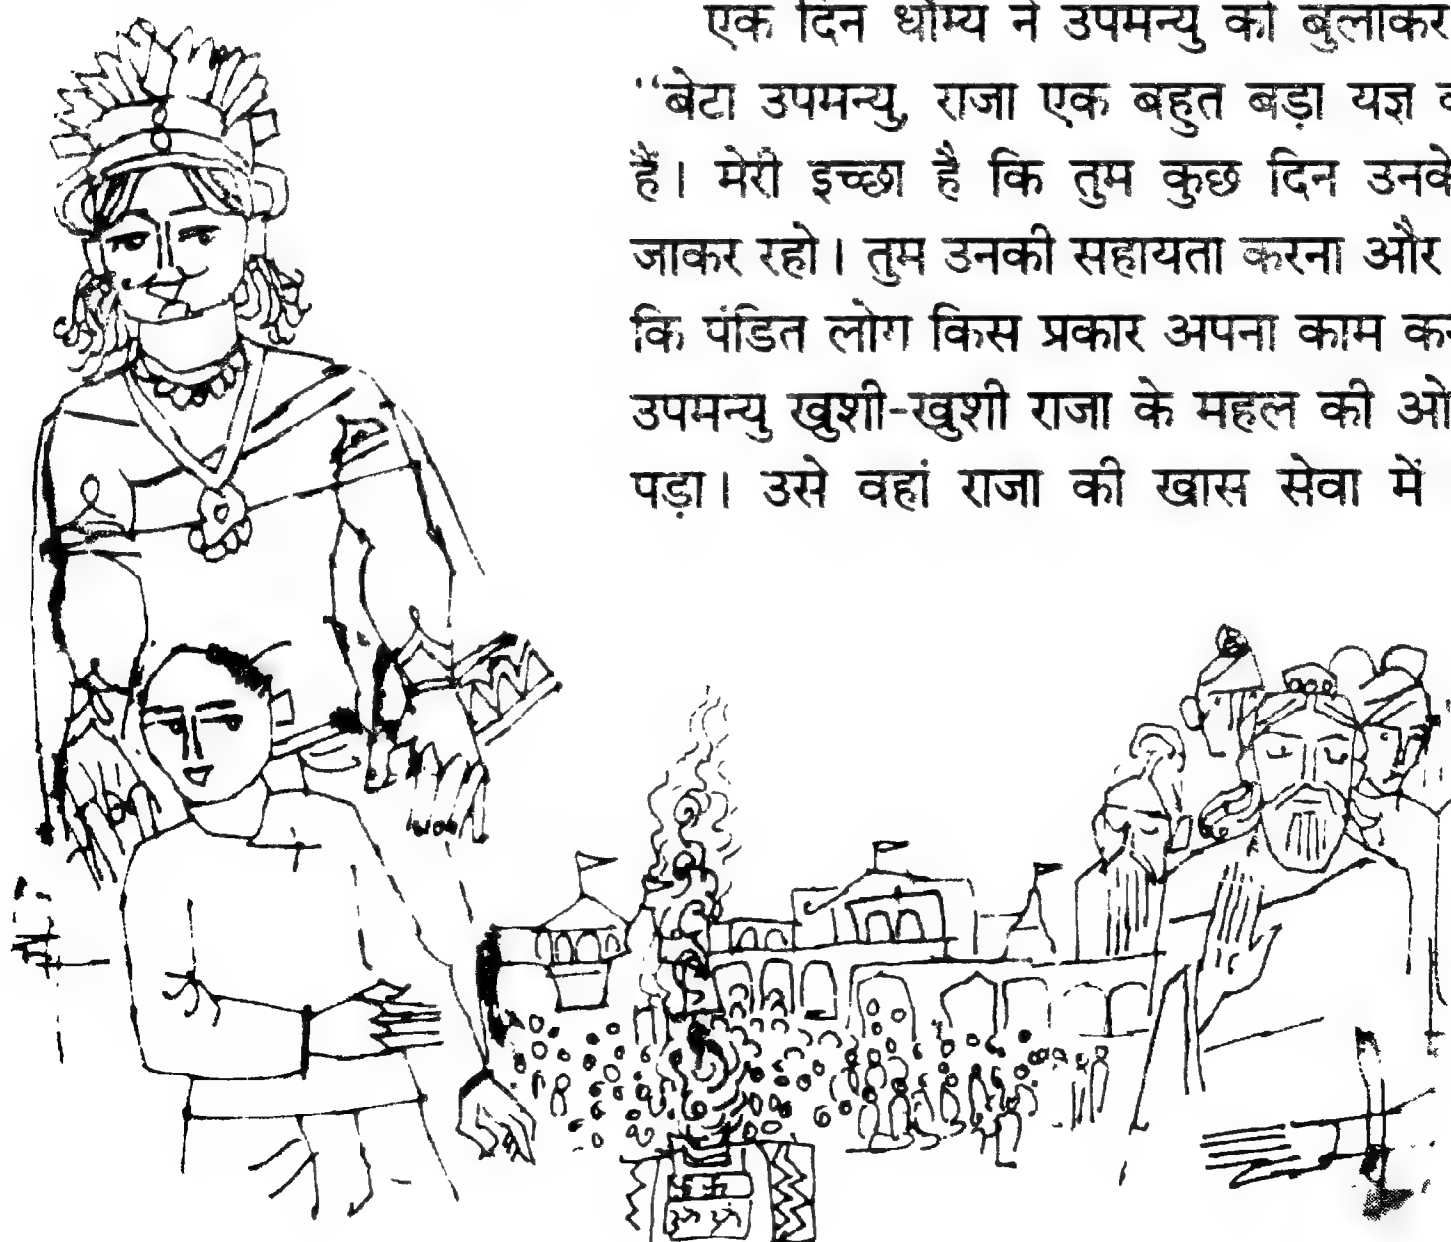 एक दिन धौम्य ने उपमन्यु को बुलाकर
“बेटा उपमन्यु, राजा एक बहुत बड़ा यज्ञ
हैं। मेरी इच्छा है कि तुम कुछ दिन उनके
जाकर रहो। तुम उनकी सहायता करना और
कि पंडित लोग किस प्रकार अपना काम
उपमन्यु खुशी-खुशी राजा के महल की
पड़ा। उसे वहां राजा की खास सेवा में